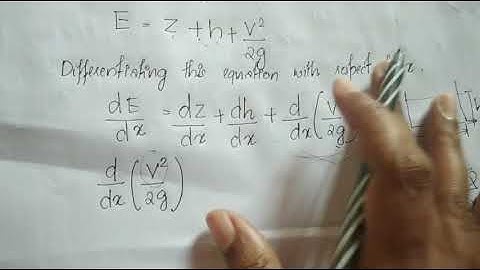 E = z + h + V²/2g
Differentiating this equation with respect x.
dE/dx = dz/dx + dh/dx + d/dx (V
d/dx (V²/2g)